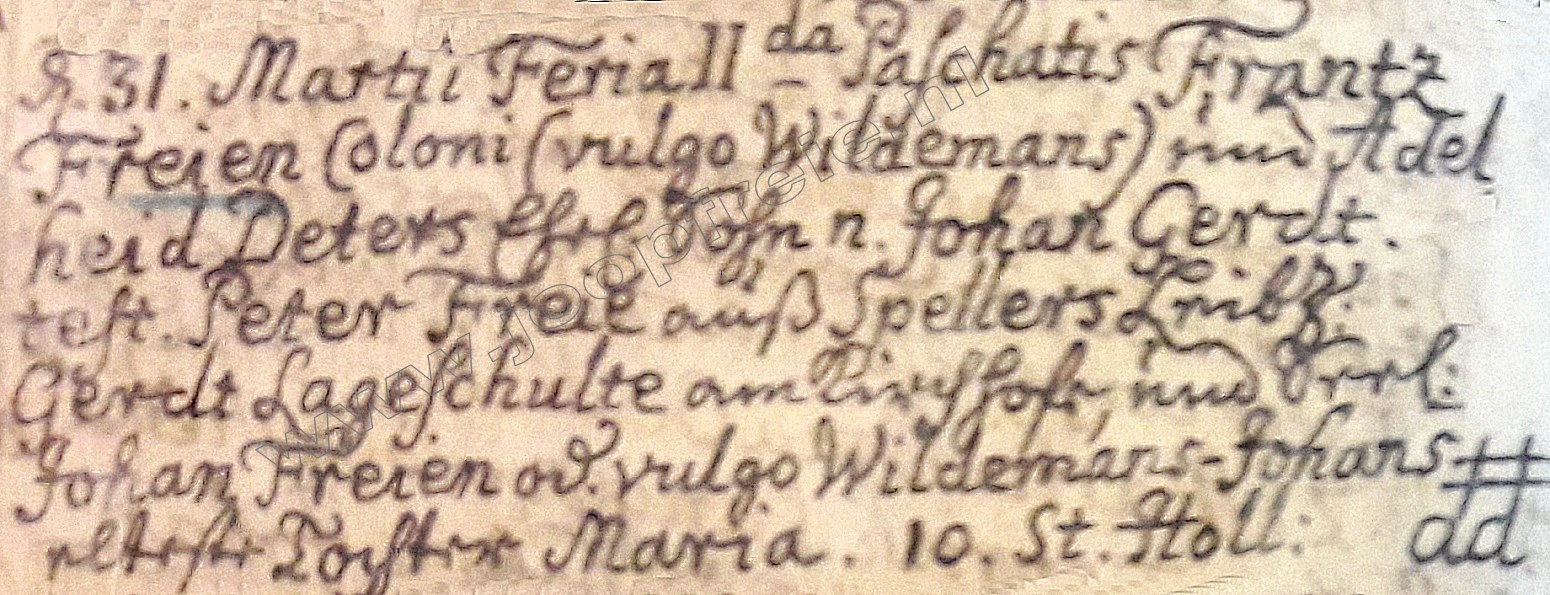 31. Martii Feria II da Paschatis Frantz
Freien Coloni (vulgo Wildemans) und Adel
heid Deters Ehel Sohn n. Johan Gerdt.
test. Peter Freie auß Spellers Leibz.
Gerdt Lageschulte am Kirchhofe, und
Johan Freien od. vulgo Wildemans-Johans
elteste Tochter Maria. 10. St. Holl: dd
www.jooptreie.nl